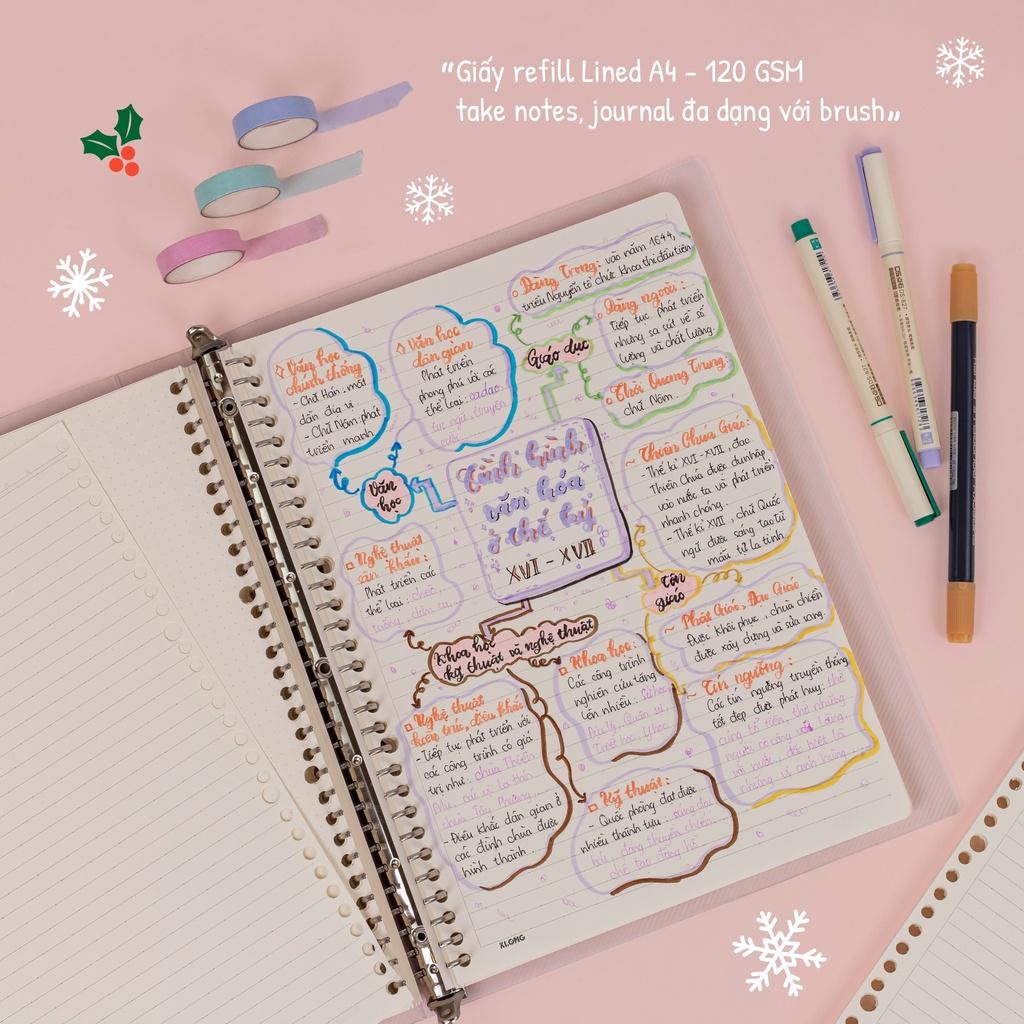 "Giấy refill Lined A4 - 120 GSM
take notes, journal đa dạng với brush„
Tình hình
văn hóa
ở thế kỷ
XVI - XVII
Văn
học
◇ Văn học
chính thống
- Chữ Hán: mất
dần địa vị.
- Chữ Nôm: phát
triển mạnh
◇ Văn học
dân gian
Phát triển
phong phú với các
thể loại: ca dao,
tục ngữ, truyện
cười
Giáo dục
Đàng Trong: vào năm 1644,
triều Nguyễn tổ chức khoa thi đầu tiên
Đàng ngoài:
Tiếp tục phát triển
nhưng sa sút về số
lượng và chất lượng.
Thời Quang Trung:
chữ Nôm
Tôn
giáo
~ Thiên Chúa Giáo:
- Thế kỉ XVI - XVII, đạo
Thiên Chúa được du nhập
vào nước ta và phát triển
nhanh chóng.
- Thế kỉ XVII, chữ Quốc
ngữ được sáng tạo từ
mẫu tự La tinh
~ Phật Giáo, Đạo Giáo
Được khôi phục, chùa chiền
được xây dựng và sửa sang.
~ Tín ngưỡng:
Các tín ngưỡng truyền thống
tốt đẹp được phát huy: thờ
cúng tổ tiên, thờ những
người có công với làng,
với nước, đặc biệt là
những vị anh hùng
Khoa học
kỹ thuật và nghệ thuật
Nghệ thuật
sân khấu:
Phát triển các
thể loại: chèo,
tuồng, dân ca
Nghệ thuật
kiến trúc, điêu khắc
- Tiếp tục phát triển với
các công trình có giá
trị như: chùa Thiên
Mụ, các vị La Hán
chùa Tây Phương,
- Điêu khắc dân gian ở
các đình chùa được
hình thành
Khoa học:
Các công trình
nghiên cứu tăng
lên nhiều: Sử học,
Địa lý, Quân sự,
Triết học, Y học
Kỹ thuật:
- Quốc phòng đạt được
nhiều thành tựu: súng đại
bác, đóng thuyền chiến,
chế tạo đồng hồ
KLONG